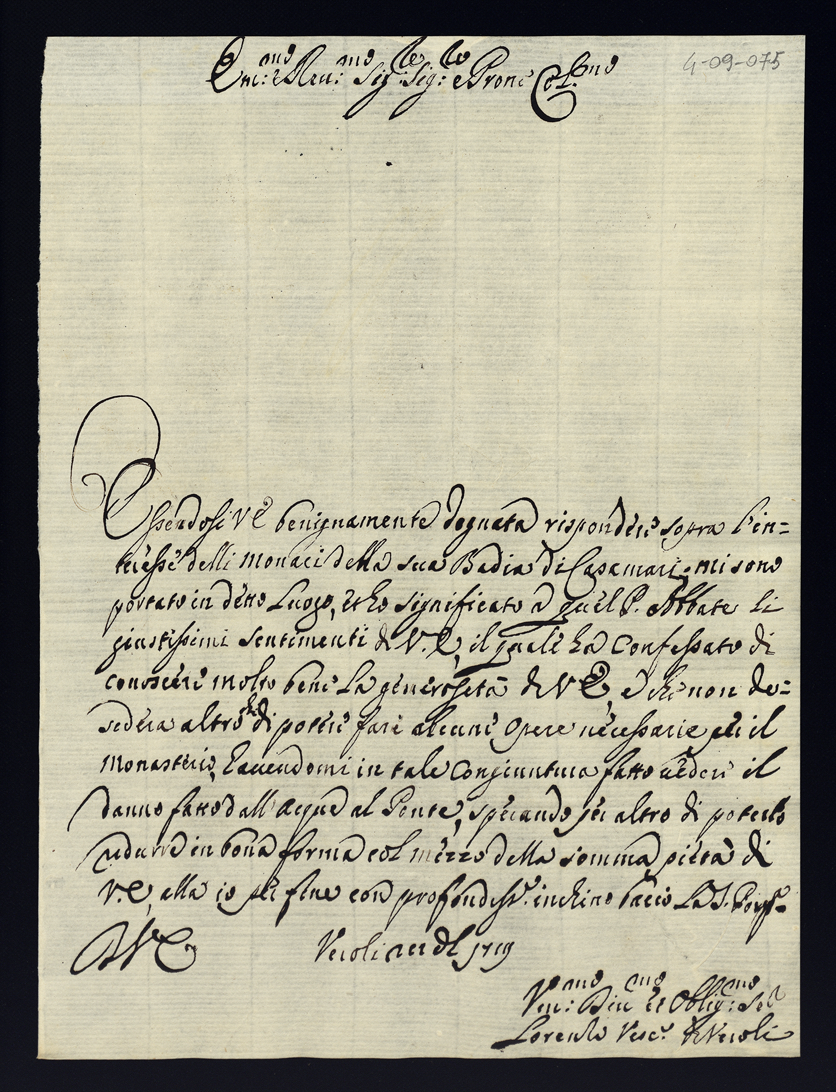 4-09-075
Em:mo e Reu:mo Sig:re Sig:re e Prone Col:mo
Essendosi V E benignamente degnata rispondere sopra l'in=
teresse delli Monaci della sua Badia di Casamari, mi sono
portato in detto Luogo, et ho significato a quel P. Abbate li
giustissimi sentimenti di V. E, il quale ha Confessato di
conoscere molto bene La generosità di V E, e che non de=
sidera altro che di poter fare alcune Opere necessarie per il
Monasterio, hauendomi in tale Congiuntura fatto uedere il
danno fatto dall'Acque al Ponte, sperando per altro di poterlo
ridurre in bona forma col mezzo della somma pietà di
V. E, alla quale per fine con profondiss:o inchino bacio La S. Porp:a
Di V E
Veroli 1719
Um:mo Diu:mo et Oblig:mo Se:
Lorenzo Vesc:o di Veroli